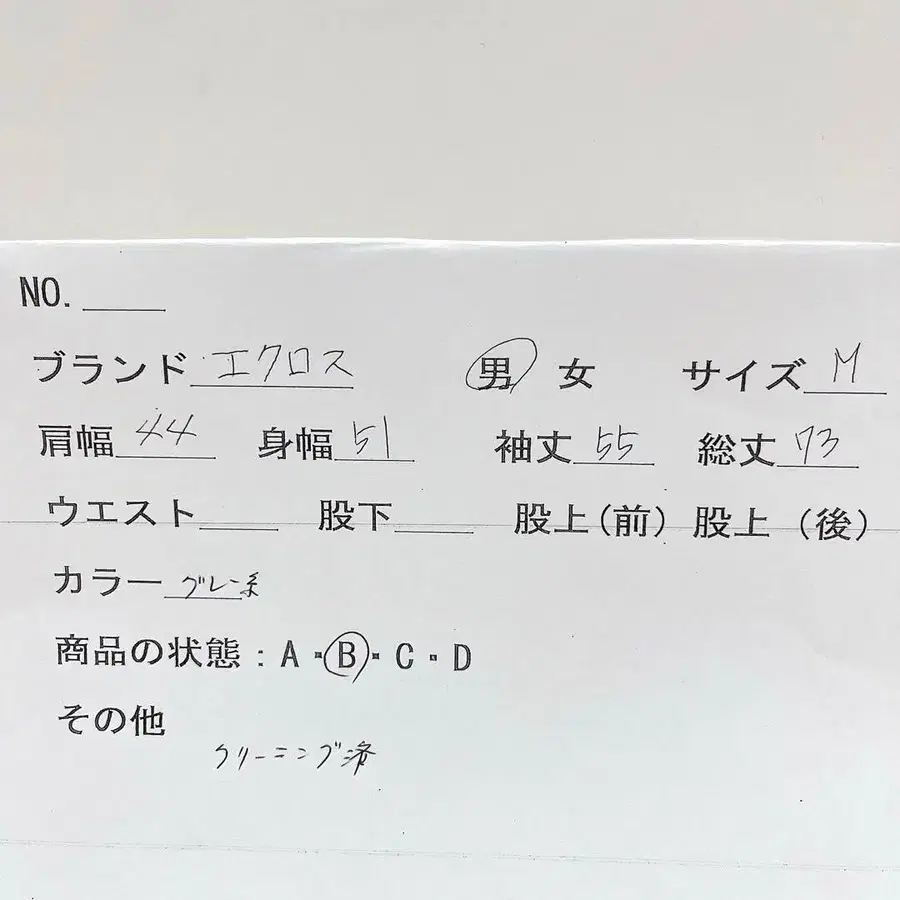 NO.
ブランド エクロス 男 女 サイズ M
肩幅 44 身幅 51 袖丈 55 総丈 73
ウエスト 股下 股上(前) 股上(後)
カラー グレー系
商品の状態:A・B・C・D
その他
クリーニング済